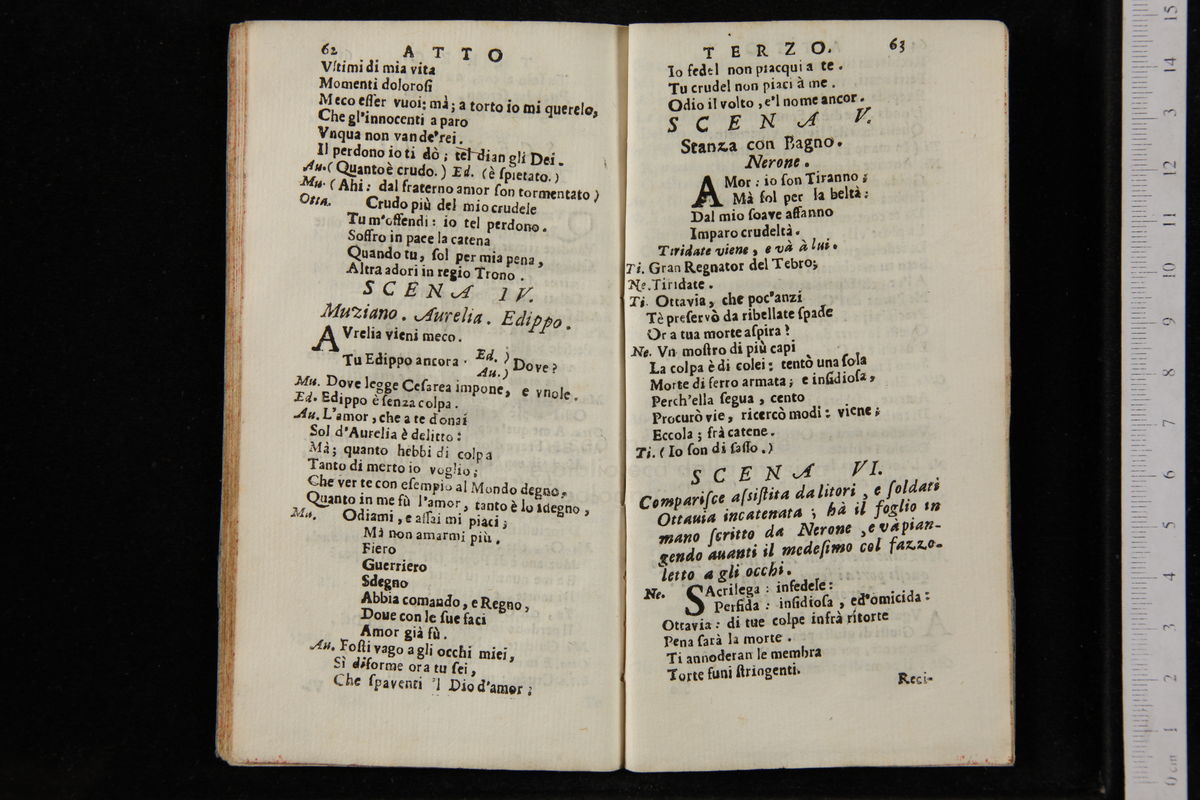 62 ATTO
Vltimi di mia vita
Momenti dolorosi
Meco esser vuoi; mà; a torto io mi querelo,
Che gl'innocenti a paro
Vnqua non van de'rei.
Il perdono io ti dò; tel dian gli Dei.
Au. (Quanto è crudo.) Ed. (è spietato.)
Mu. (Ahi: dal fraterno amor son tormentato)
Otta. Crudo più del mio crudele
Tu m'offendi: io tel perdono.
Soffro in pace la catena
Quando tu, sol per mia pena,
Altra adori in regio Trono.
SCENA IV.
Muziano. Aurelia. Edippo.
AVrelia vieni meco.
Tu Edippo ancora. Ed. ) Dove?
Au.)
Mu. Dove legge Cesarea impone, e vuole.
Ed. Edippo è senza colpa.
Au. L'amor, che a te donai
Sol d'Aurelia è delitto:
Mà; quanto hebbi di colpa
Tanto di merto io voglio;
Che ver te con esempio al Mondo degno,
Quanto in me fù l'amor, tanto è lo sdegno,
Mu. Odiami, e assai mi piaci;
Mà non amarmi più.
Fiero
Guerriero
Sdegno
Abbia comando, e Regno,
Doue con le sue faci
Amor già fù.
Au. Fosti vago agli occhi miei,
Sì diforme ora tu sei,
Che spaventi 'l Dio d'amor;
TERZO. 63
Io fedel non piacqui a te.
Tu crudel non piaci à me.
Odio il volto, e'l nome ancor.
SCENA V.
Stanza con Bagno.
Nerone.
AMor: io son Tiranno;
Mà sol per la beltà:
Dal mio soave affanno
Imparo crudeltà.
Tiridate viene, e và à lui.
Ti. Gran Regnator del Tebro;
Ne. Tiridate.
Ti. Ottavia, che poc'anzi
Tè preservò da ribellate spade
Or a tua morte aspira?
Ne. Vn mostro di più capi
La colpa è di colei: tentò una sola
Morte di ferro armata; e insidiosa,
Perch'ella segua, cento
Procurò vie, ricercò modi: viene;
Eccola; frà catene.
Ti. (Io son di sasso.)
SCENA VI.
Comparisce assistita da litori, e soldati
Ottauia incatenata; hà il foglio in
mano scritto da Nerone, e và pian-
gendo auanti il medesimo col fazzo-
letto agli occhi.
Ne. SAcrilega: infedele:
Perfida: insidiosa, ed'omicida:
Ottavia: di tue colpe infrà ritorte
Pena sarà la morte.
Ti annoderan le membra
Torte funi stringenti.
Reci-
0 cm 1 2 3 4 5 6 7 8 9 10 11 12 13 14 15